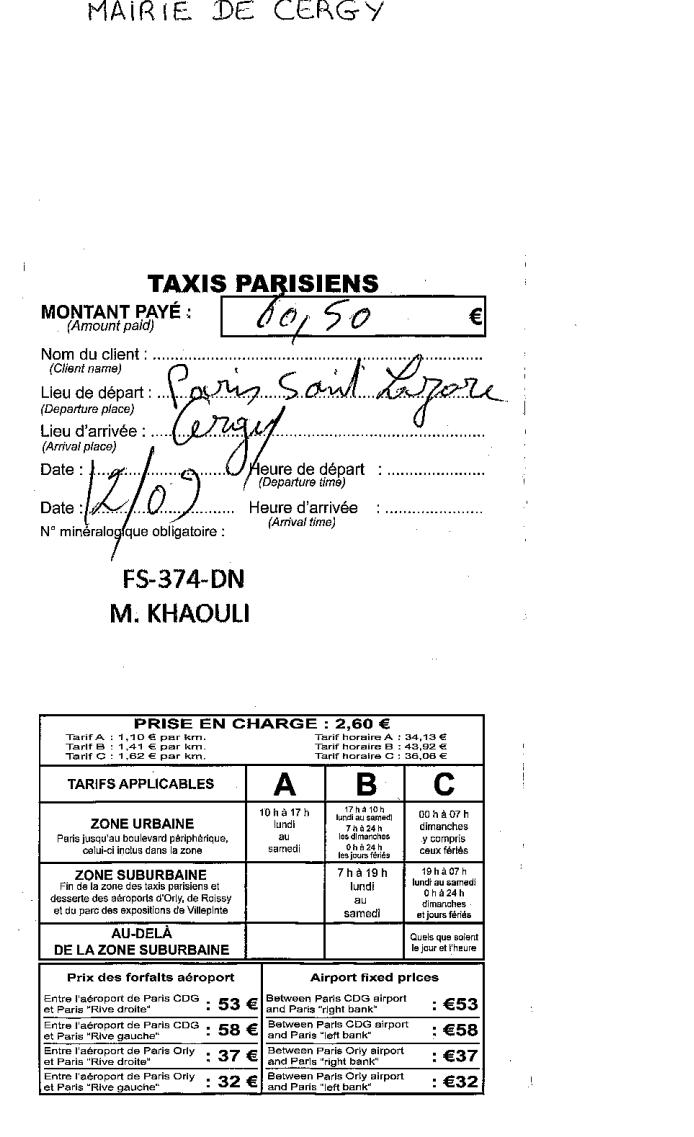 MAIRIE DE CERGY
TAXIS PARISIENS
MONTANT PAYÉ : 60,50 €
(Amount paid)
Nom du client :
(Client name)
Lieu de départ : Paris Saint Lazare
(Departure place)
Lieu d'arrivée : Cergy
(Arrival place)
Date : Heure de départ :
(Departure time)
Date : 12/09 Heure d'arrivée :
(Arrival time)
N° minéralogique obligatoire :
FS-374-DN
M. KHAOULI
PRISE EN CHARGE : 2,60 €
Tarif A : 1,10 € par km. Tarif horaire A : 34,13 €
Tarif B : 1,41 € par km. Tarif horaire B : 43,92 €
Tarif C : 1,62 € par km. Tarif horaire C : 36,06 €
TARIFS APPLICABLES A B C
ZONE URBAINE
Paris jusqu'au boulevard périphérique,
celui-ci inclus dans la zone
10 h à 17 h
lundi
au
samedi
17 h à 10 h
lundi au samedi
7 h à 24 h
les dimanches
0 h à 24 h
les jours fériés
00 h à 07 h
dimanches
y compris
ceux fériés
ZONE SUBURBAINE
Fin de la zone des taxis parisiens et
desserte des aéroports d'Orly, de Roissy
et du parc des expositions de Villepinte
7 h à 19 h
lundi
au
samedi
19 h à 07 h
lundi au samedi
0 h à 24 h
dimanches
et jours fériés
AU-DELÀ
DE LA ZONE SUBURBAINE
Quels que soient
le jour et l'heure
Prix des forfaits aéroport
Entre l'aéroport de Paris CDG
et Paris "Rive droite" : 53 €
Entre l'aéroport de Paris CDG
et Paris "Rive gauche" : 58 €
Entre l'aéroport de Paris Orly
et Paris "Rive droite" : 37 €
Entre l'aéroport de Paris Orly
et Paris "Rive gauche" : 32 €
Airport fixed prices
Between Paris CDG airport
and Paris "right bank" : €53
Between Paris CDG airport
and Paris "left bank" : €58
Between Paris Orly airport
and Paris "right bank" : €37
Between Paris Orly airport
and Paris "left bank" : €32